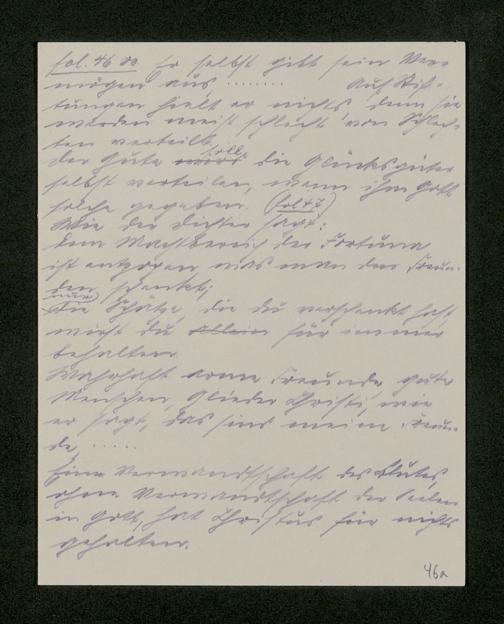 fol. 46 00 Er selbst gibt sein Ver-
mögen aus, ........ Auf Stif-
tungen hielt er nichts, denn sie
werden meist schlecht, von Schlech-
ten verteilt.
Der Gute soll die Glücksgüter
selbst verteilen, wenn ihm Gott
solche gegeben. (fol 47)
Wie der Dichter sagt:
Dem Machtbereich der Fortuna
ist entzogen, was man den Freun-
den schenkt;
nur
Die Schätze, die du verschenkt hast
wirst du allein für immer
behalten.
Wahrhaft arme Freunde, gute
Menschen, Glieder Christi, wie
er sagt, das sind meine Freun-
de, .....
Eine Verwandtschaft des Blutes,
ohne Verwandtschaft der Seelen
in Gott, hat Christus für nichts
gehalten.
46a